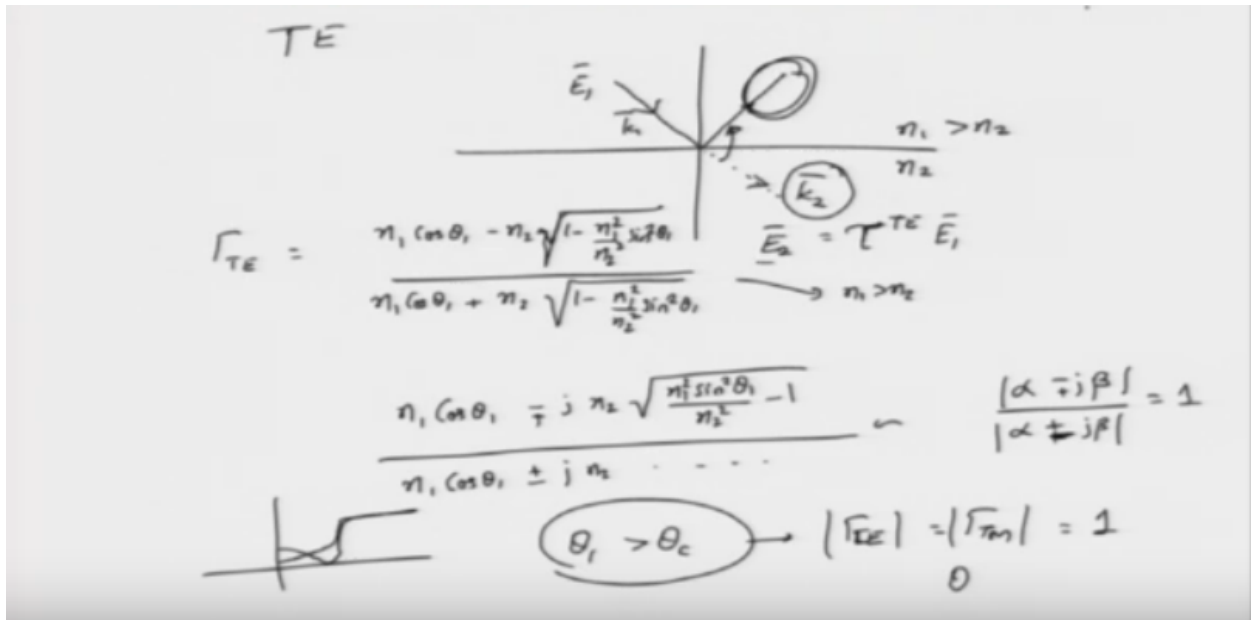 TE
Ē₁
k̄₁
n₁ > n₂
n₂
k̄₂
Γ_TE = (n₁ cos θ₁ - n₂ √(1 - n₁²/n₂² sin²θ₁)) / (n₁ cos θ₁ + n₂ √(1 - n₁²/n₂² sin²θ₁)) → n₁ > n₂
Ē₂ = τ^TE Ē₁
(n₁ cos θ₁ ∓ j n₂ √(n₁² sin²θ₁/n₂² - 1)) / (n₁ cos θ₁ ± j n₂ . . . .) ~ |α ∓ jβ| / |α ± jβ| = 1
θ₁ > θc → |Γ_TE| = |Γ_TM| = 1
0